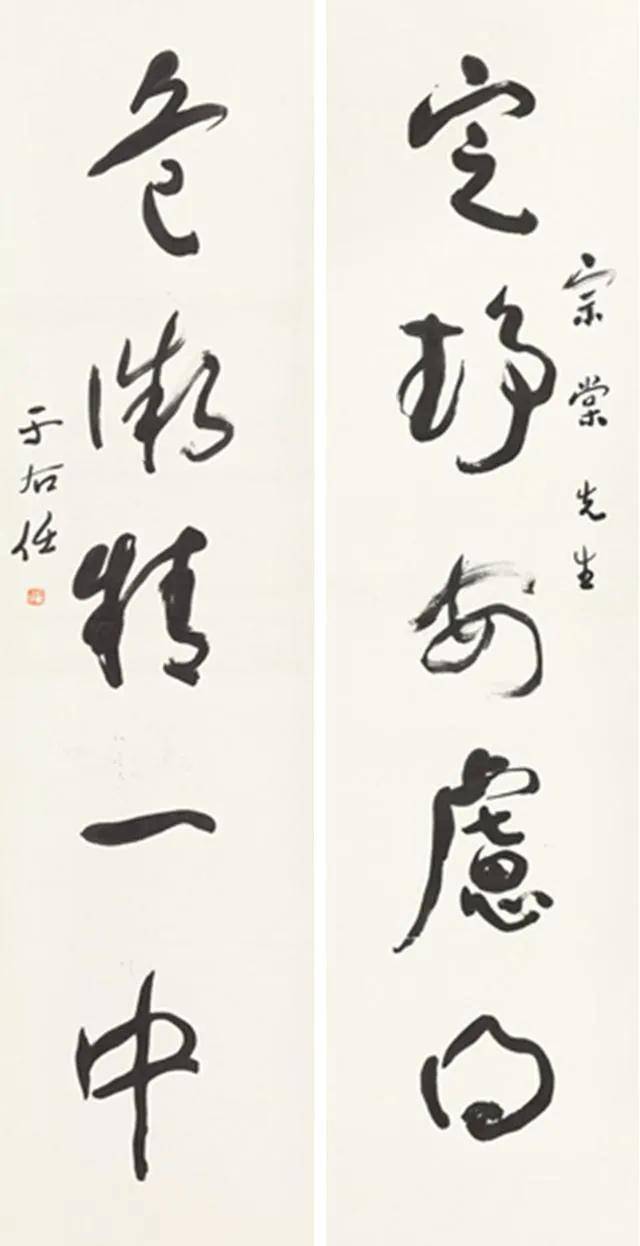 定靜安慮得
宗棠先生
危微精一中
于右任